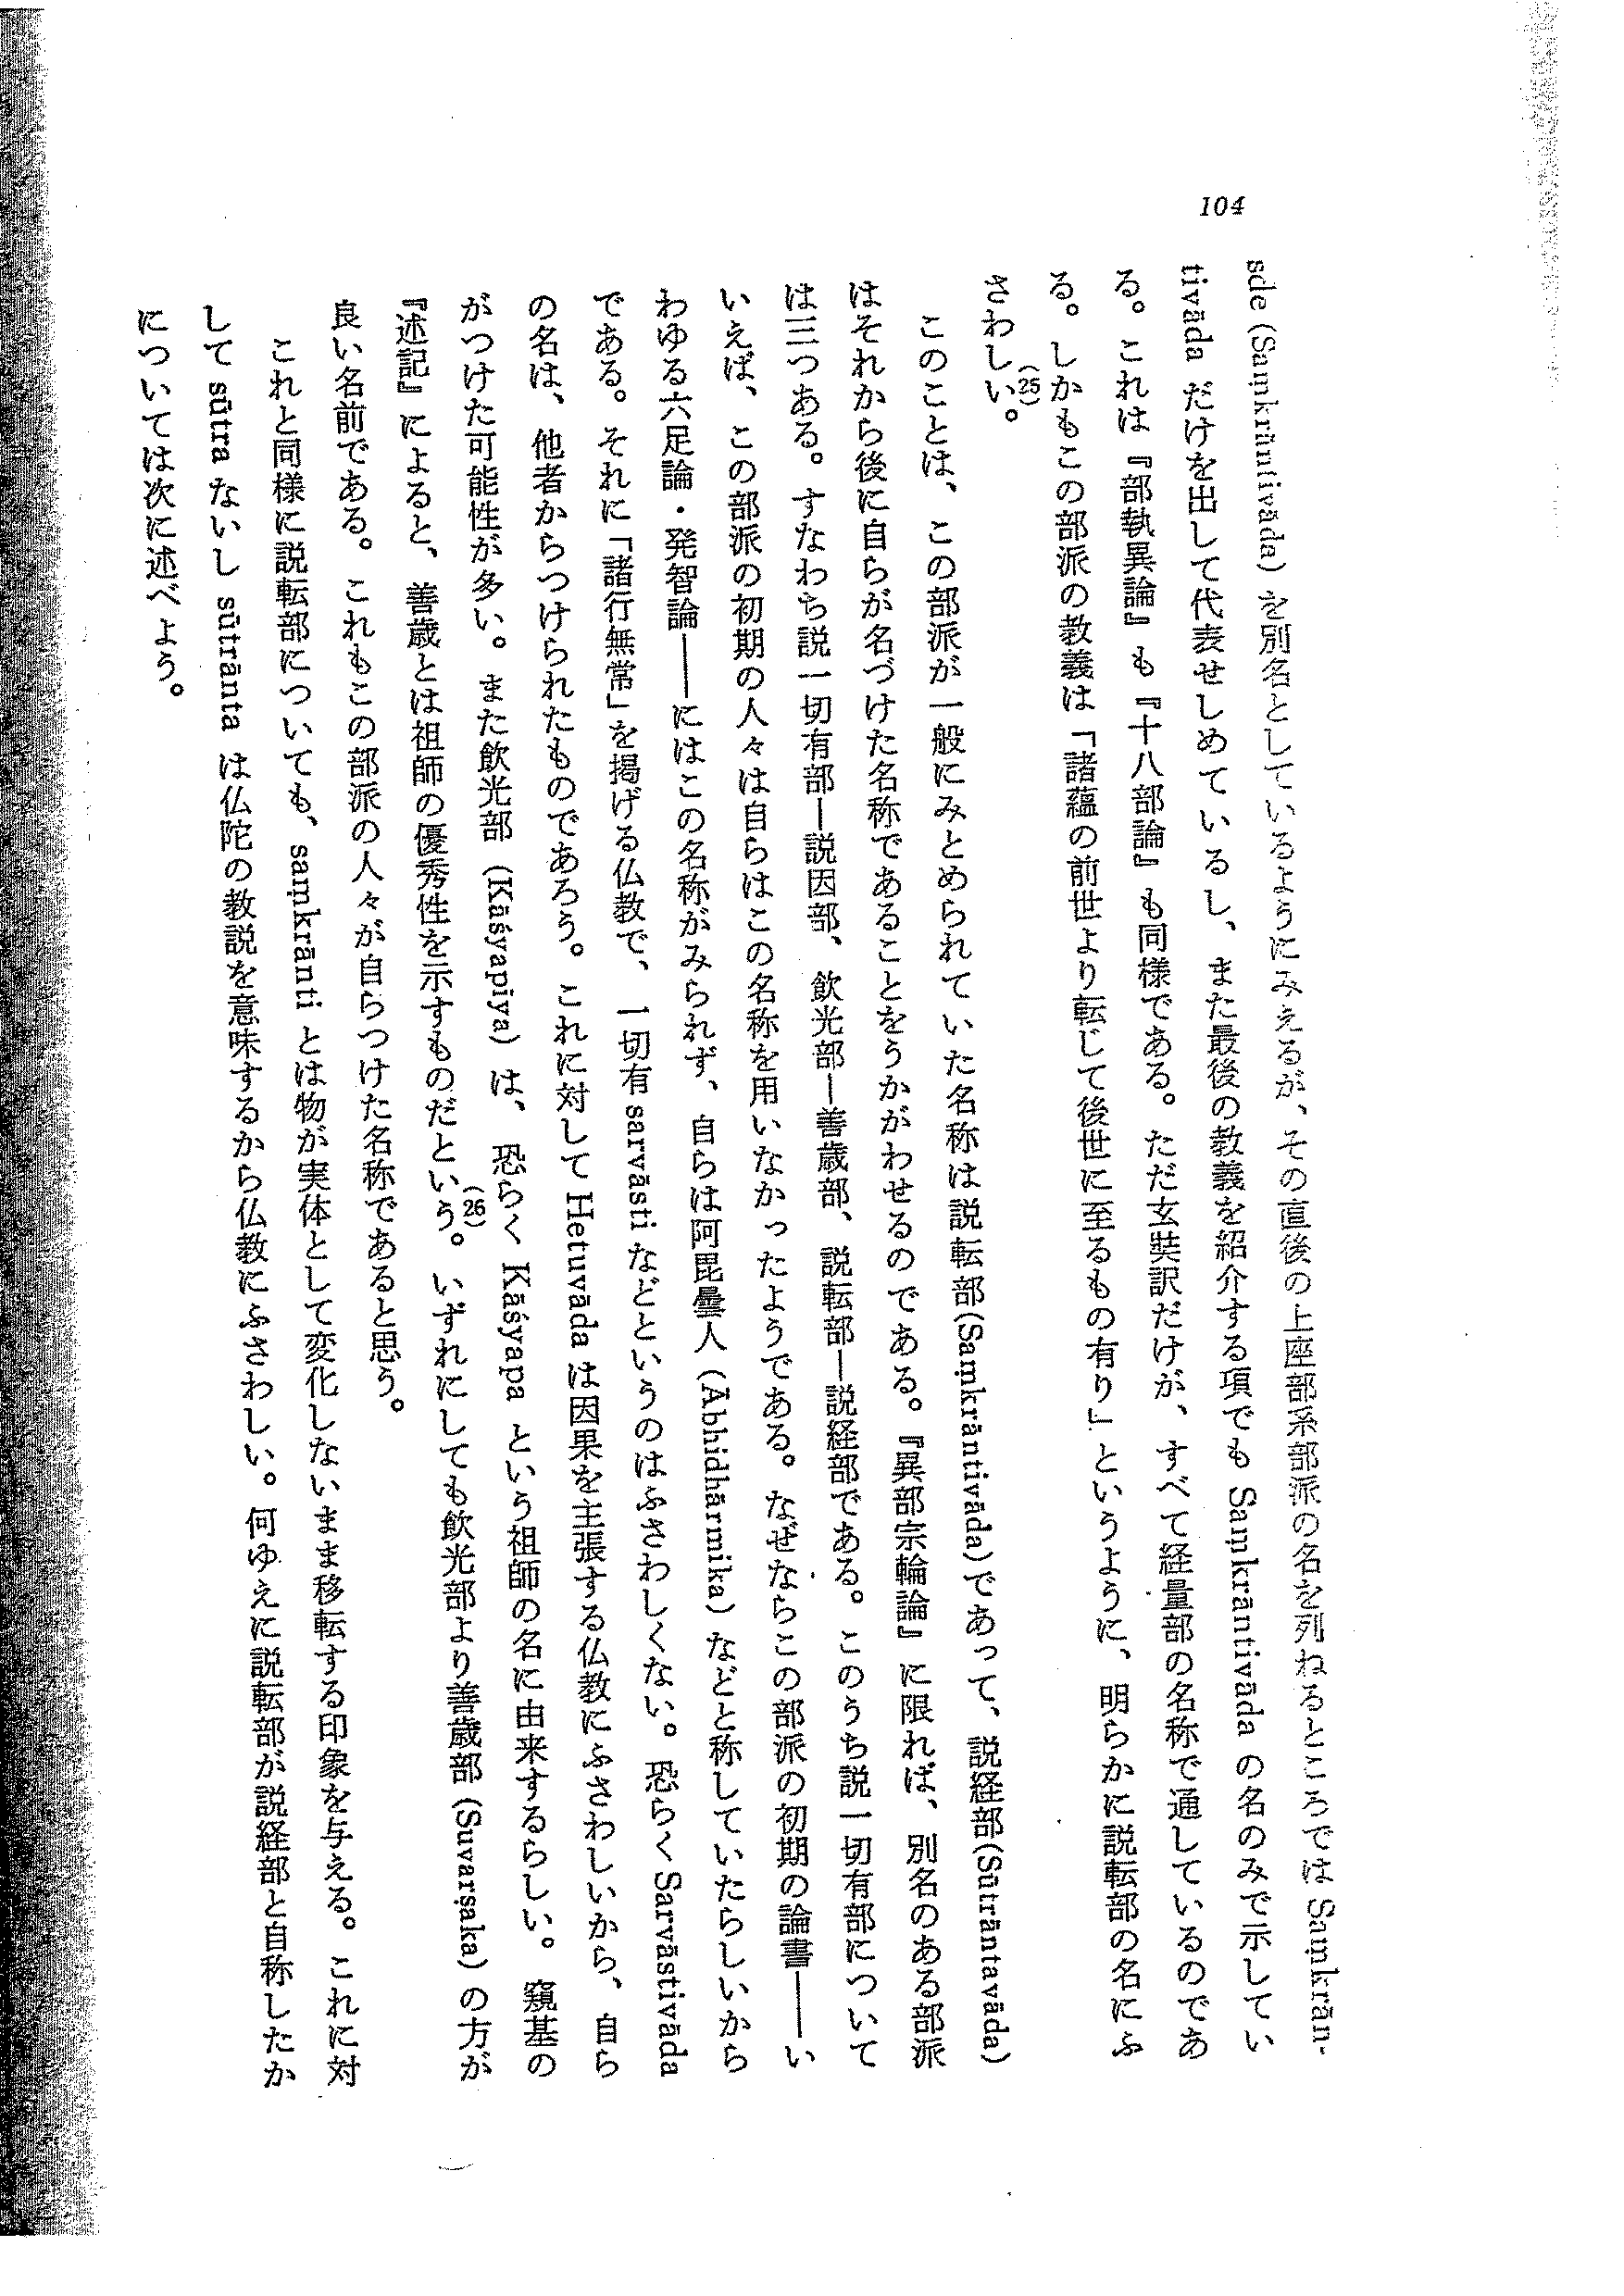 104
sde (Saṃkrāntivāda) を別名としているようにみえるが、その直後の上座部系部派の名を列ねるところでは Saṃkrān-
tivāda だけを出して代表せしめているし、また最後の教義を紹介する項でも Saṃkrāntivāda の名のみで示してい
る。これは『部執異論』も『十八部論』も同様である。ただ玄奘訳だけが、すべて経量部の名称で通しているのであ
る。しかもこの部派の教義は「諸蘊の前世より転じて後世に至るもの有り」というように、明らかに説転部の名にふ
さわしい。(25)
このことは、この部派が一般にみとめられていた名称は説転部(Saṃkrāntivāda)であって、説経部(Sūtrāntavāda)
はそれから後に自らが名づけた名称であることをうかがわせるのである。『異部宗輪論』に限れば、別名のある部派
は三つある。すなわち説一切有部―説因部、飲光部―善歳部、説転部―説経部である。このうち説一切有部について
いえば、この部派の初期の人々は自らはこの名称を用いなかったようである。なぜならこの部派の初期の論書――い
わゆる六足論・発智論――にはこの名称がみられず、自らは阿毘曇人 (Ābhidhārmika) などと称していたらしいから
である。それに「諸行無常」を掲げる仏教で、一切有 sarvāsti などというのはふさわしくない。恐らく Sarvāstivāda
の名は、他者からつけられたものであろう。これに対して Hetuvāda は因果を主張する仏教にふさわしいから、自ら
がつけた可能性が多い。また飲光部 (Kāśyapiya) は、恐らく Kāśyapa という祖師の名に由来するらしい。窺基の
『述記』によると、善歳とは祖師の優秀性を示すものだという。(26)いずれにしても飲光部より善歳部 (Suvarṣaka) の方が
良い名前である。これもこの部派の人々が自らつけた名称であると思う。
これと同様に説転部についても、saṃkrānti とは物が実体として変化しないまま移転する印象を与える。これに対
して sūtra ないし sūtrānta は仏陀の教説を意味するから仏教にふさわしい。何ゆえに説転部が説経部と自称したか
については次に述べよう。